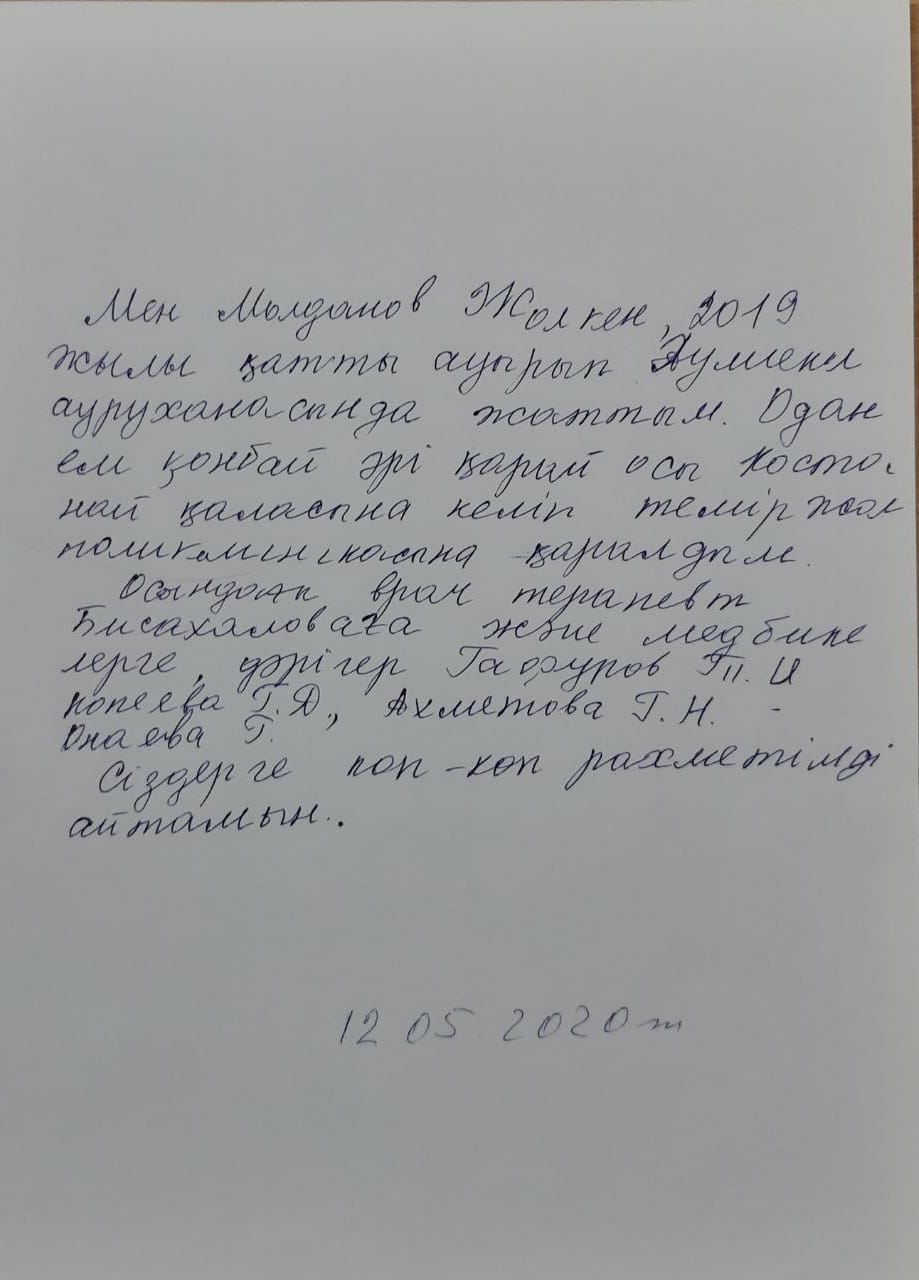 Мен Молдамов Жолкен, 2019
жылы қатты ауырып Әулиекөл
ауруханасында жаттым. Одан
ем қонбай әрі қарай осы Коста
най қаласына келіп теміржол
поликлиникасына қаралдым.
Осындағы врач терапевт
Бисахаловаға және медбике
лерге, дәрігер Гафуров П. И
Копеева Г. Д., Ахметова Г. Н. -
Онаева Г.
Сіздерге коп-коп рахметімді
айтамын.
12 05 2020 т